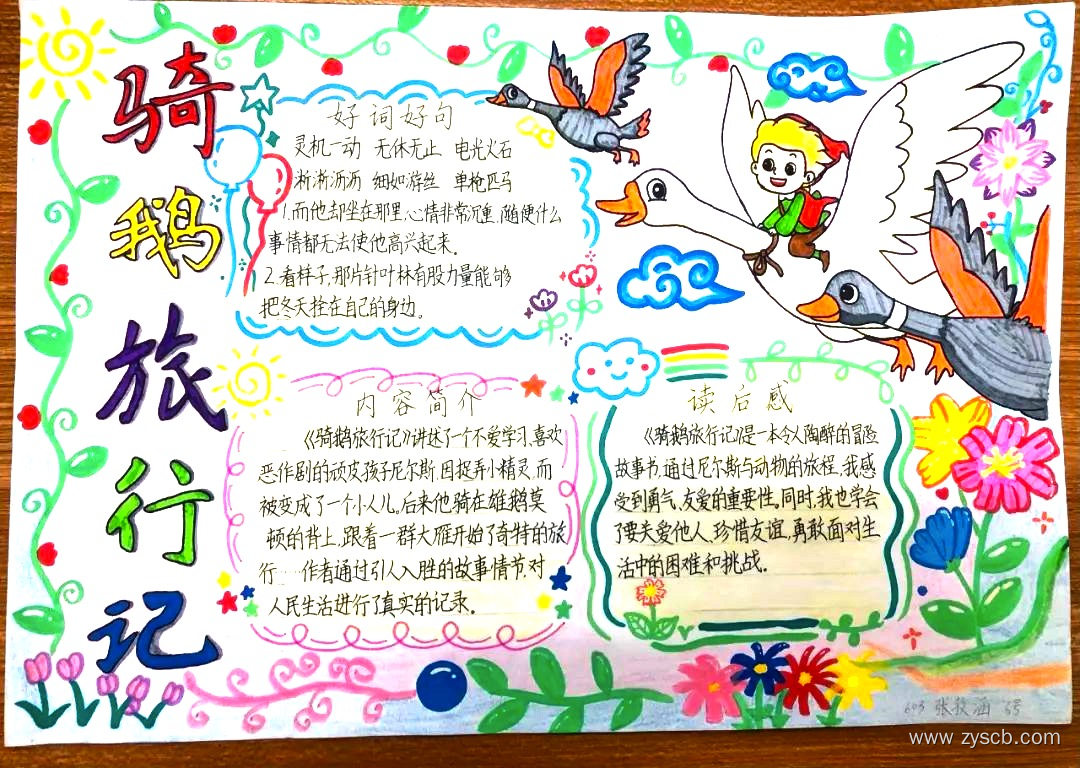 骑鹅旅行记
好词好句
灵机一动 无休无止 电光火石
淅淅沥沥 细如游丝 单枪匹马
1.而他却坐在那里,心情非常沉重,随便什么
事情都无法使他高兴起来.
2.看样子,那片针叶林有股力量能够
把冬天拴在自己的身边。
内容简介
《骑鹅旅行记》讲述了一个不爱学习、喜欢
恶作剧的顽皮孩子尼尔斯,因捉弄小精灵,而
被变成了一个小人儿,后来他骑在雄鹅莫
顿的背上,跟着一群大雁开始了奇特的旅
行……作者通过引人入胜的故事情节,对
人民生活进行了真实的记录.
读后感
《骑鹅旅行记》是一本令人陶醉的冒险
故事书.通过尼尔斯与动物的旅程,我感
受到勇气、友爱的重要性。同时,我也学会
了要关爱他人、珍惜友谊,勇敢面对生
活中的困难和挑战.
603 张 涵
www.zyscb.com